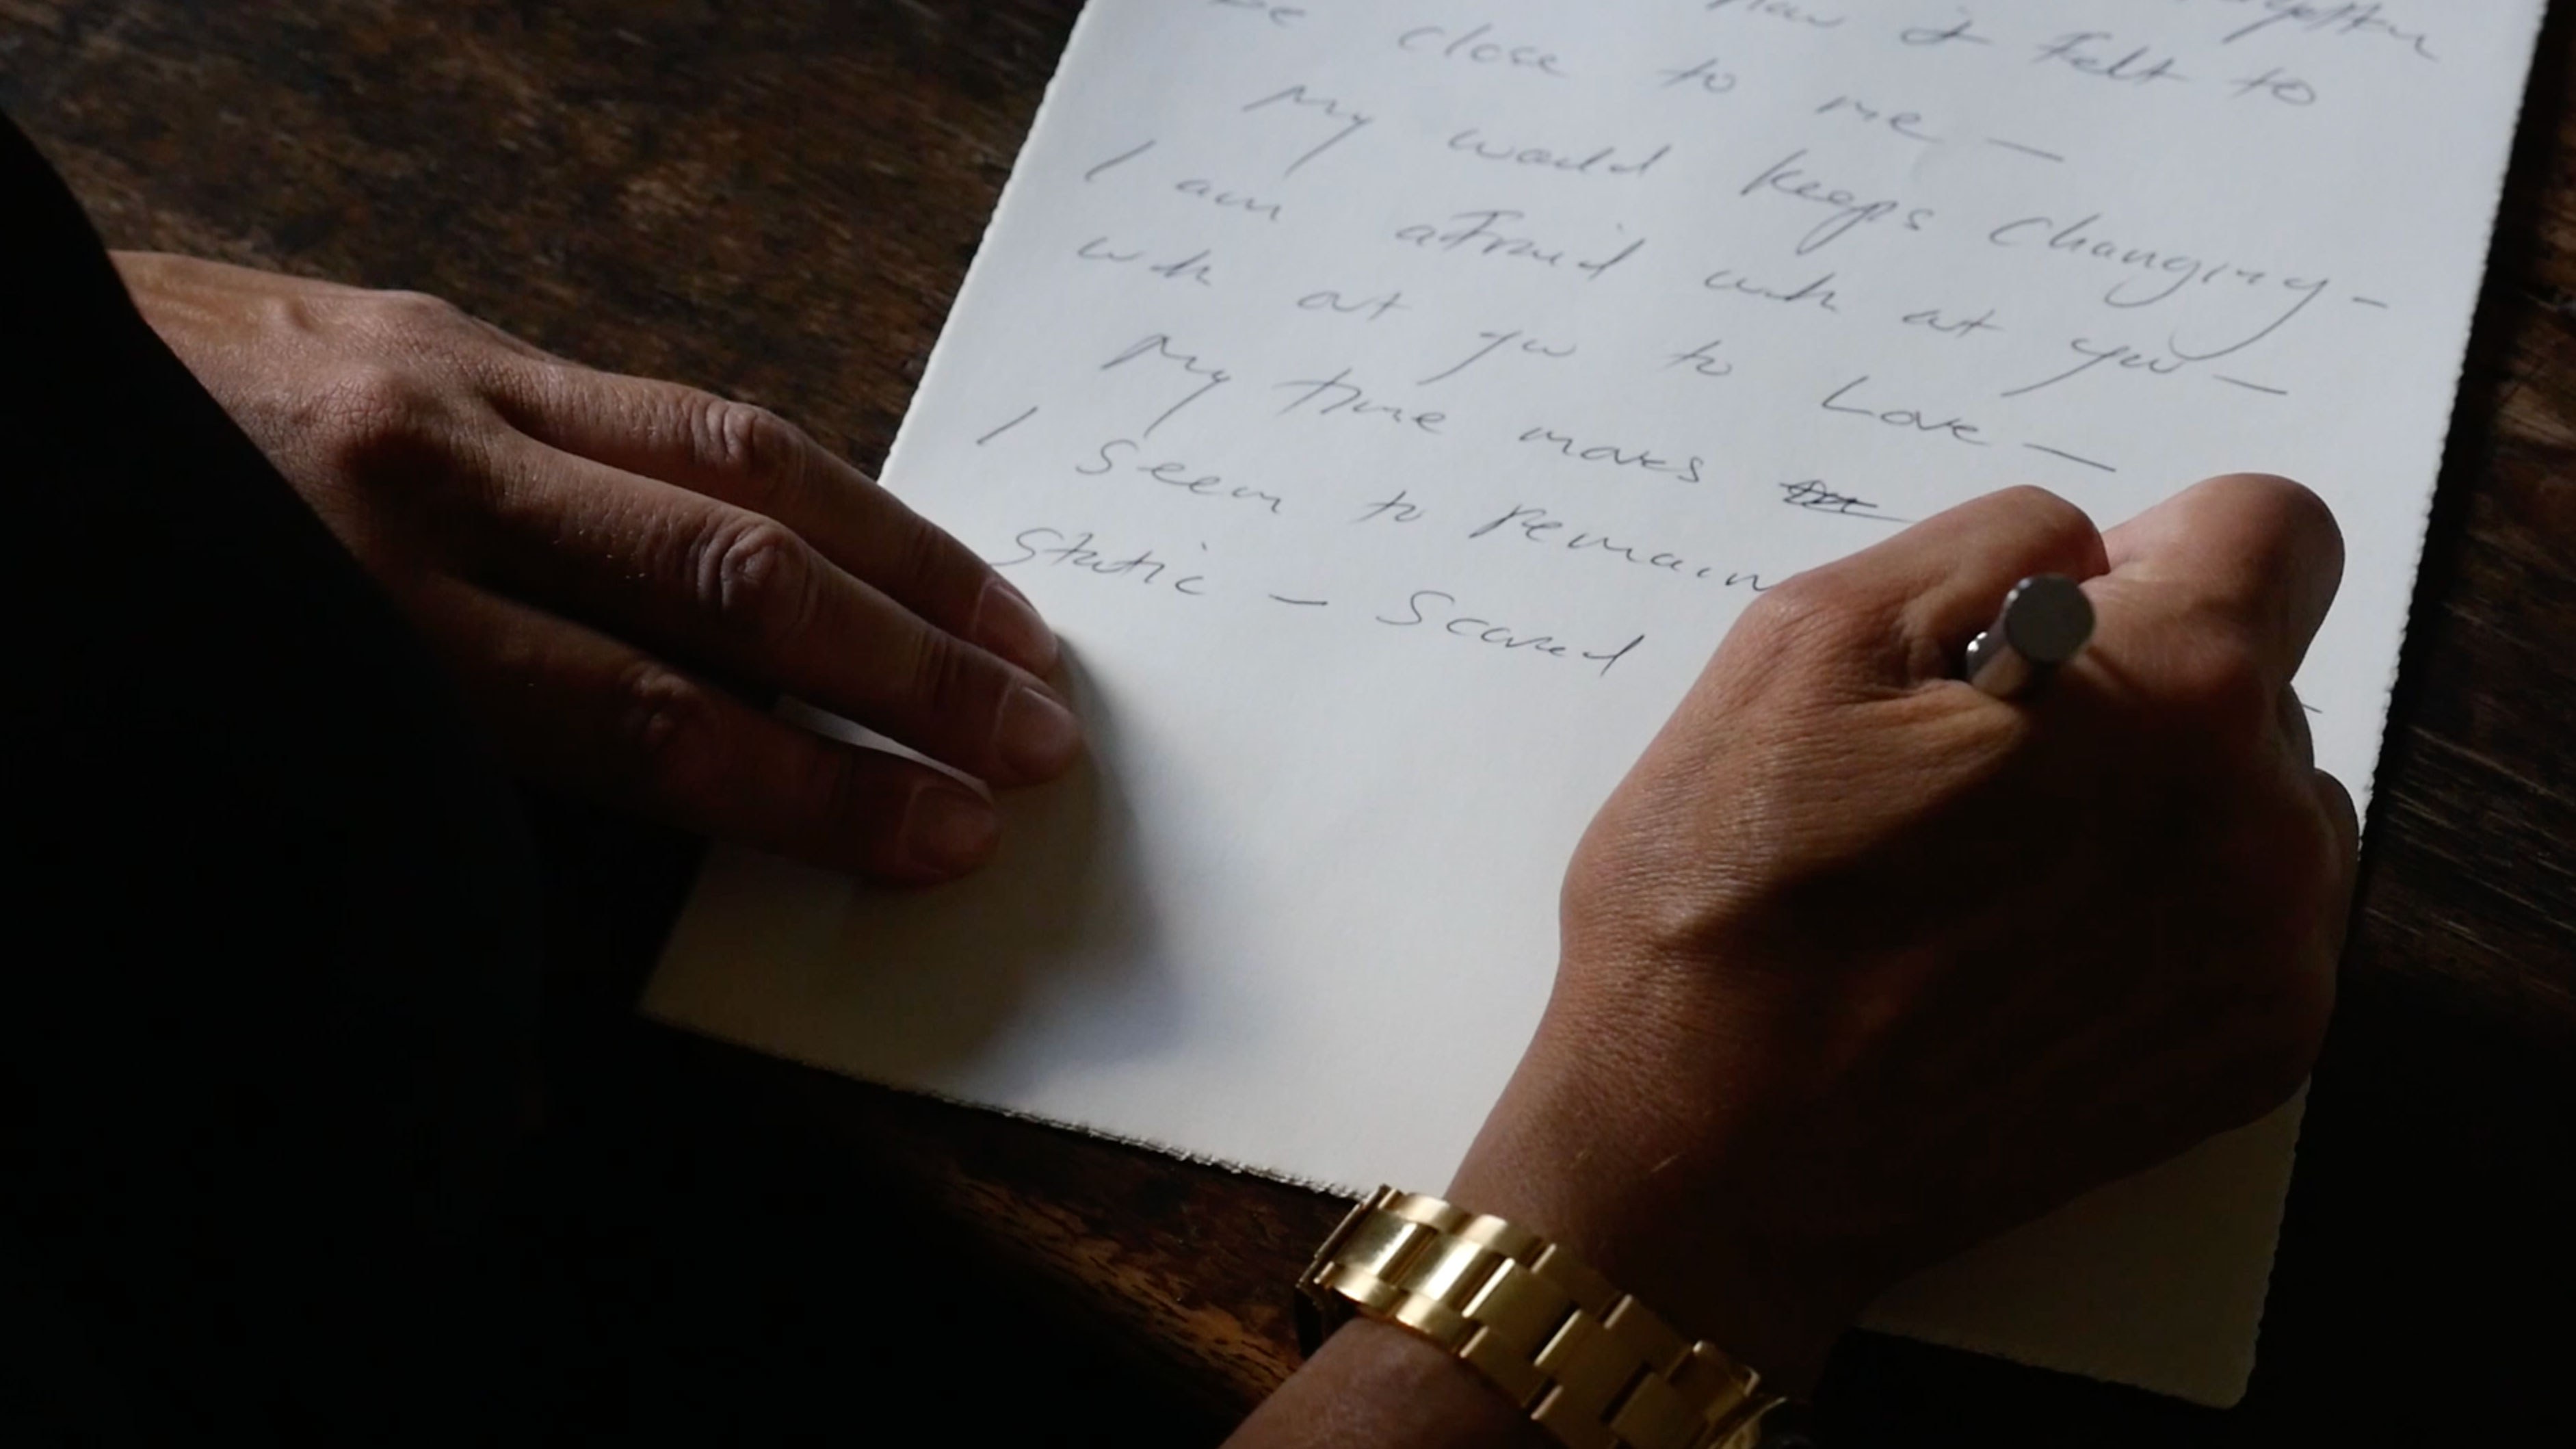 how I felt to
be close to me —
My world keeps changing –
I am afraid with at you —
with at you to Love —
My time moves
I seem to remain
static – scared